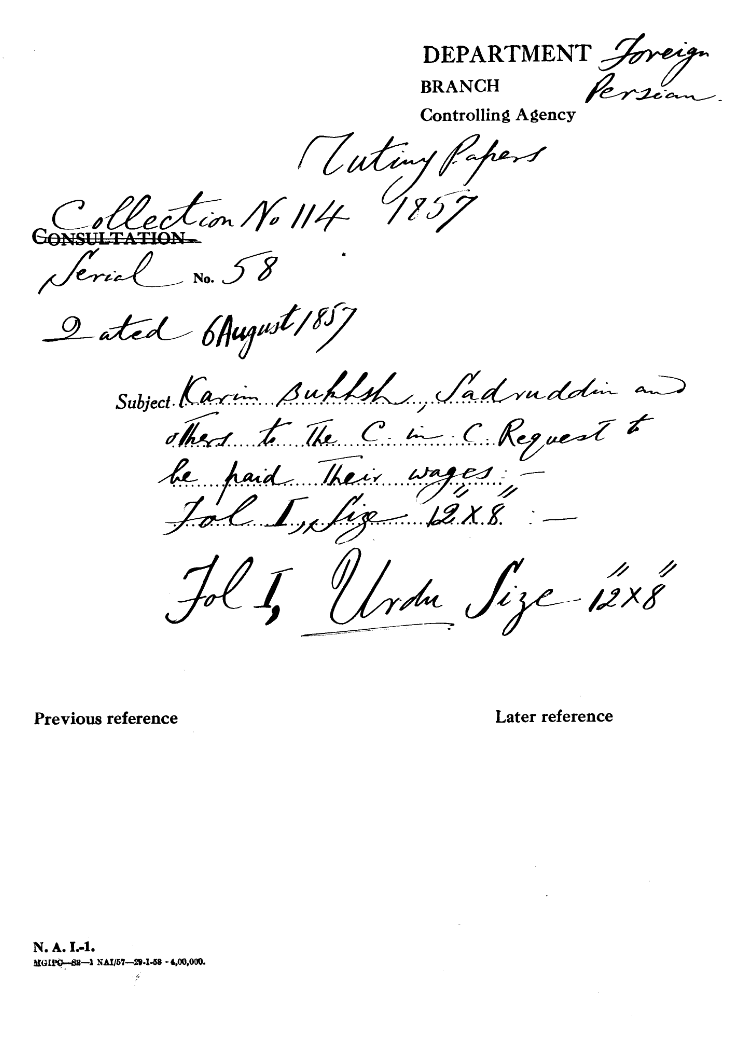 DEPARTMENT Foreign
BRANCH Persian.
Controlling Agency
Mutiny Papers
Collection No 114 1857
CONSULTATION
Serial No. 58
Dated 6 August 1857
Subject Karim Bukhsh, Sadruddin and
others to the C. in. C. Request to
be paid their wages :—
Fol I, Size 12" x 8" :—
Fol I, Urdu Size 12" x 8"
Previous reference
Later reference
N. A. I.-1.
MGIPC—S2—1 NAI/57—29-1-58 - 4,00,000.